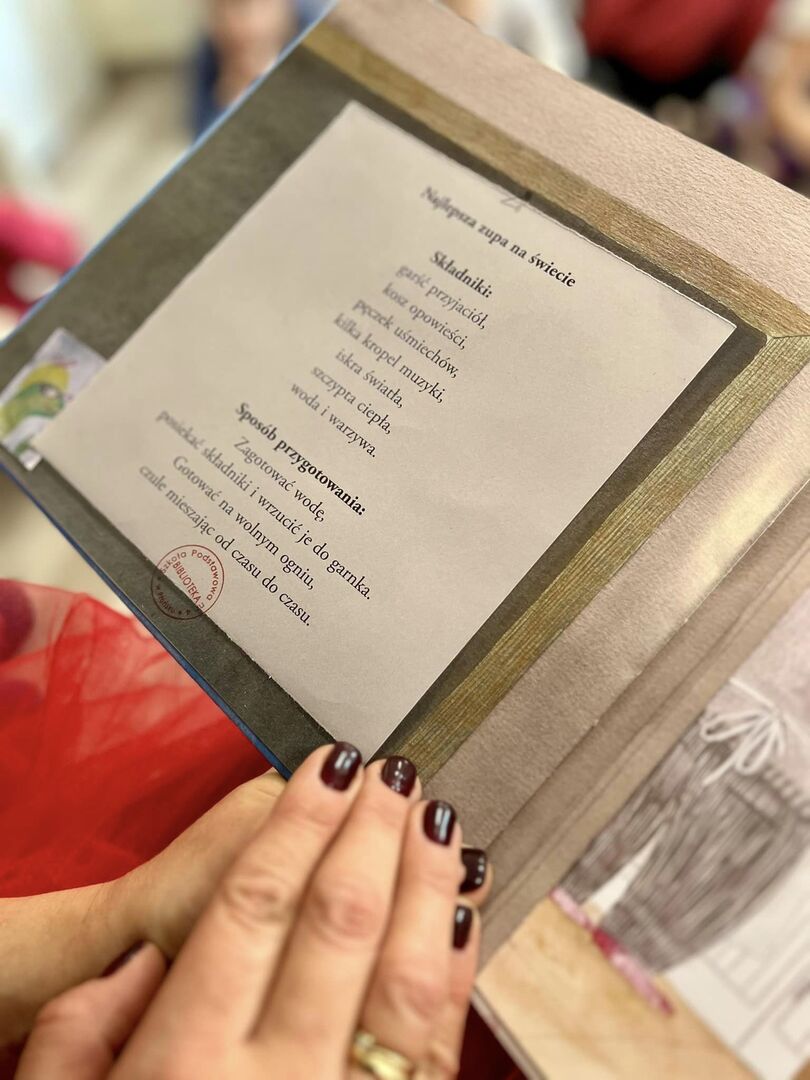 Najlepsza zupa na świecie
Składniki:
garść przyjaciół,
kosz opowieści,
pęczek uśmiechów,
kilka kropel muzyki,
iskra światła,
szczypta ciepła,
woda i warzywa.
Sposób przygotowania:
Zagotować wodę,
posiekać składniki i wrzucić je do garnka.
Gotować na wolnym ogniu,
czule mieszając od czasu do czasu.
Szkoła Podstawowa
BIBLIOTEKA